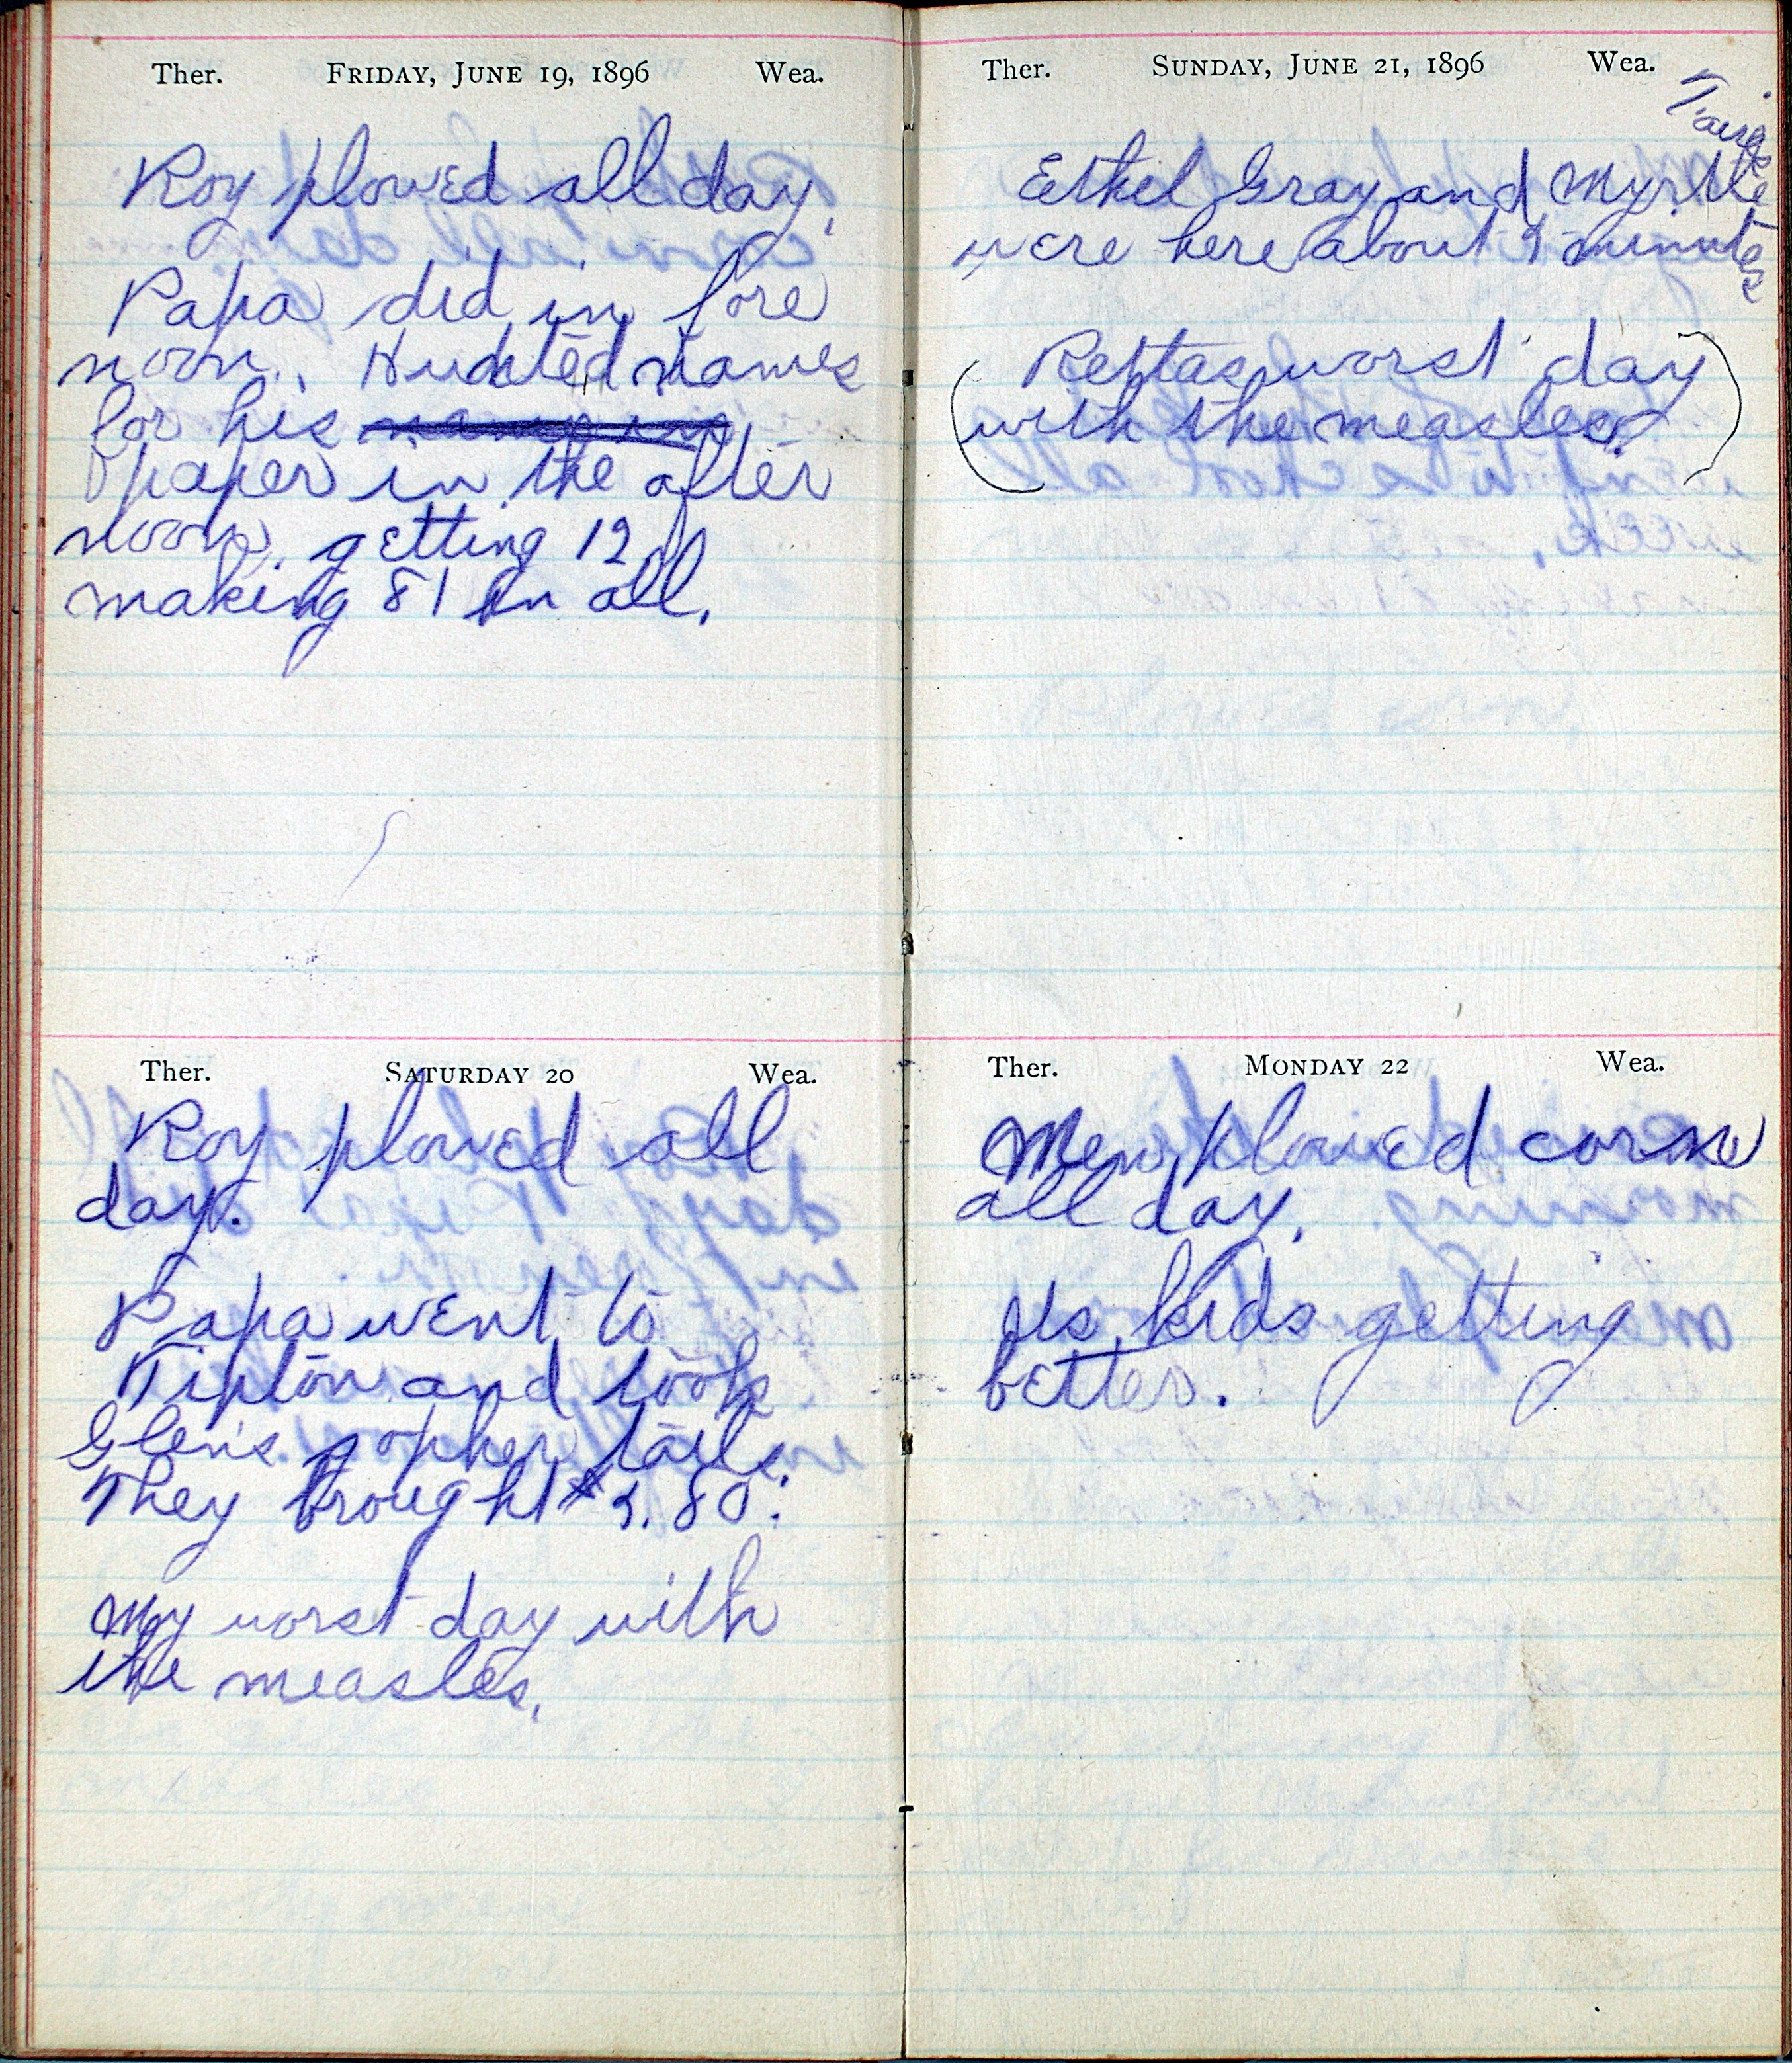 Ther. FRIDAY, JUNE 19, 1896 Wea.
Roy plowed all day.
Papa did in fore
noon. Hunted names
for his
paper in the after
noon, getting 12
making 81 in all.
Ther. SATURDAY 20 Wea.
Roy plowed all
day.
Papa went to
Tipton and took
Glen's gopher tails.
They brought $5.80.
My worst day with
the measles.
Ther. SUNDAY, JUNE 21, 1896 Wea.
Ethel Gray and Myrtle
were here about minutes
(Rettas worst day
with the measles.)
Ther. MONDAY 22 Wea.
Men plowed corn
all day.
Us kids getting
better.